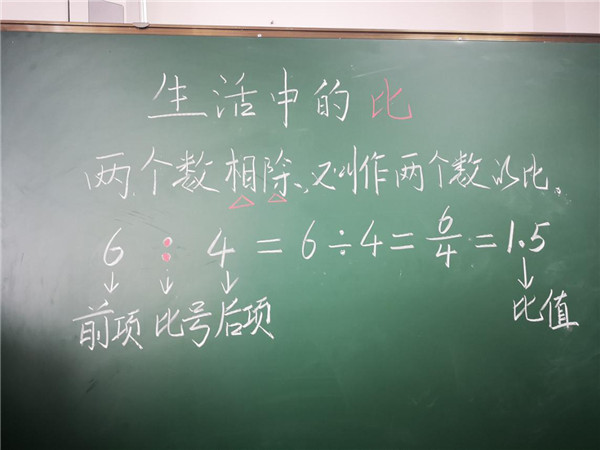 生活中的比
两个数相除、又叫作两个数的比。
6 : 4 = 6÷4 = 6/4 = 1.5
前项 比号 后项 比值